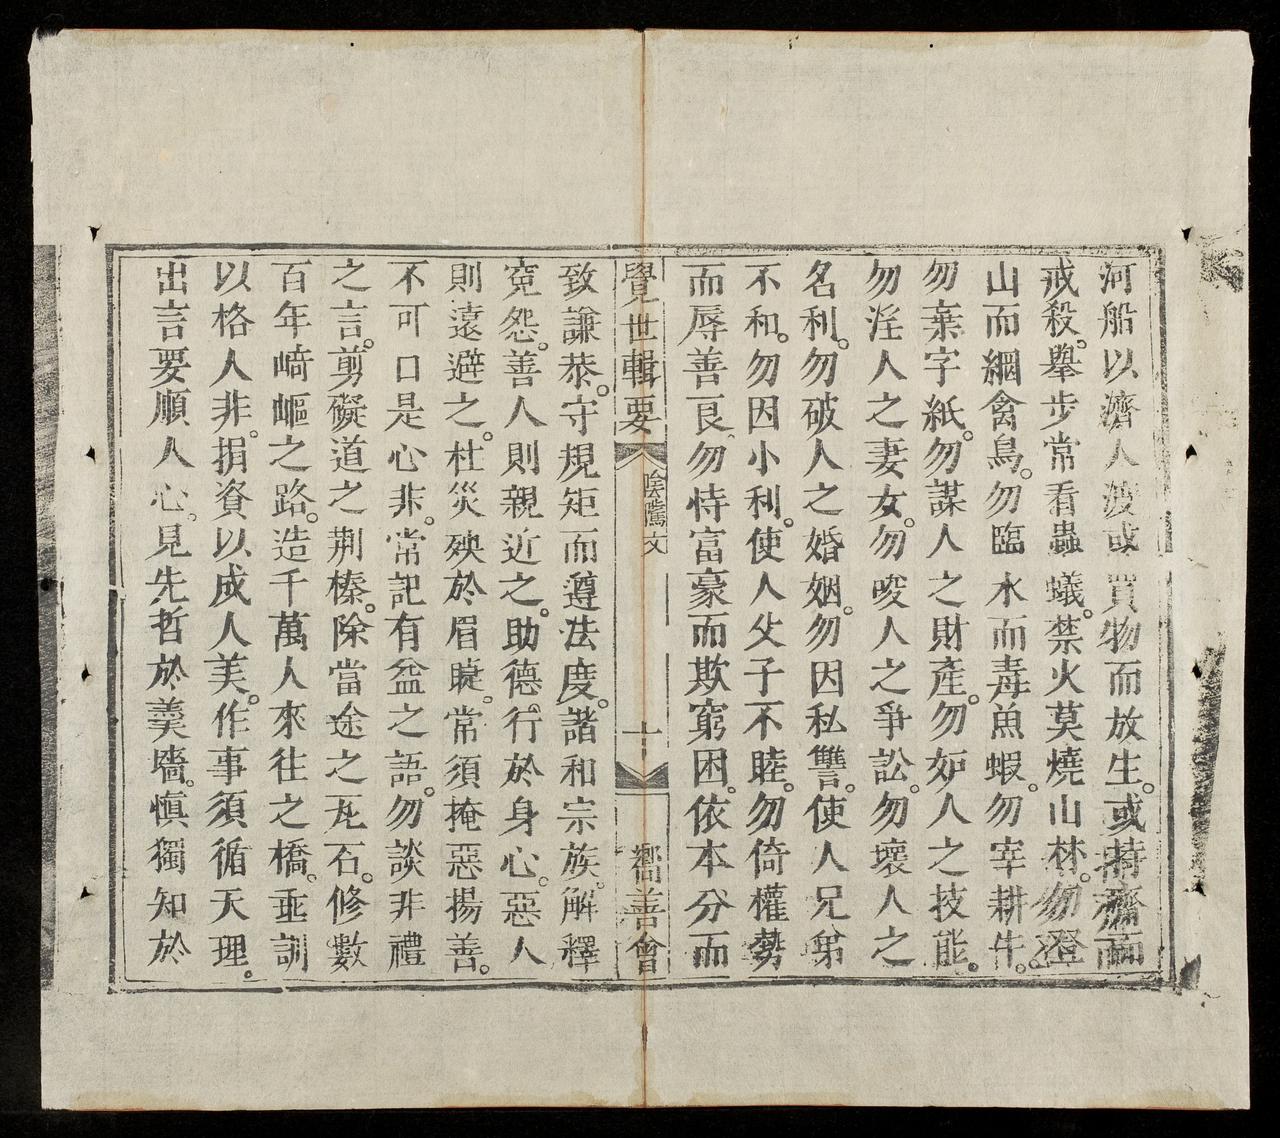 河船以濟人渡或買物而放生或持齋而
戒殺舉步常看蟲蟻禁火莫燒山林勿登
山而網禽鳥勿臨水而毒魚蝦勿宰耕牛
勿棄字紙勿謀人之財產勿妒人之技能
勿淫人之妻女勿唆人之爭訟勿壞人之
名利勿破人之婚姻勿因私讐使人兄弟
不和勿因小利使人父子不睦勿倚權勢
而辱善良勿恃富豪而欺窮困依本分而
覺世輯要 陰隲文 十 嚮善會
致謙恭守規矩而遵法度諧和宗族解釋
寃怨善人則親近之助德行於身心惡人
則遠避之杜災殃於眉睫常須掩惡揚善
不可口是心非常記有益之語勿談非禮
之言剪礙道之荆榛除當途之瓦石修數
百年崎嶇之路造千萬人來往之橋垂訓
以格人非捐資以成人美作事須循天理
出言要順人心見先哲於羹墻慎獨知於